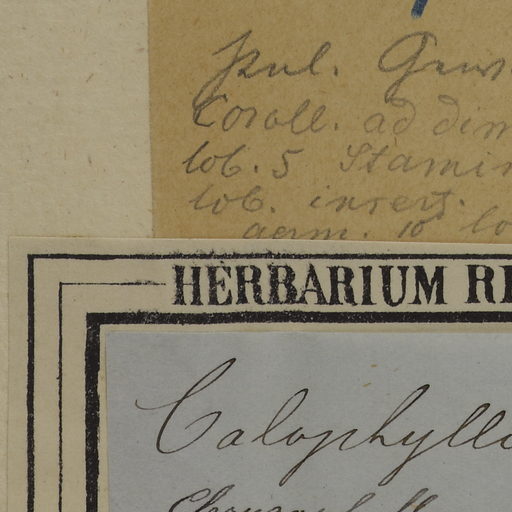 Coroll. ad dim
lob. 5 Stamin
lob. insert.
germ. 10 lo
HERBARIUM RE
Calophyllo